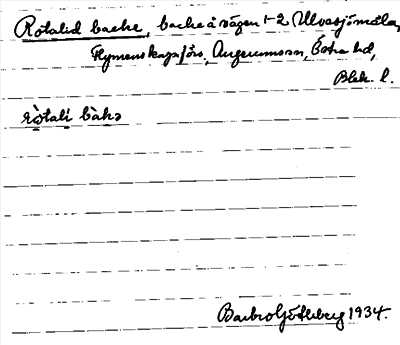 Rotalid backe, backe å vägen t. 2 Ulvasjömåla,
Flymens kapa förs. Augerumssn, Östra hd,
Blek. l.
ròtali bàkə
Barbro Götheberg 1934.